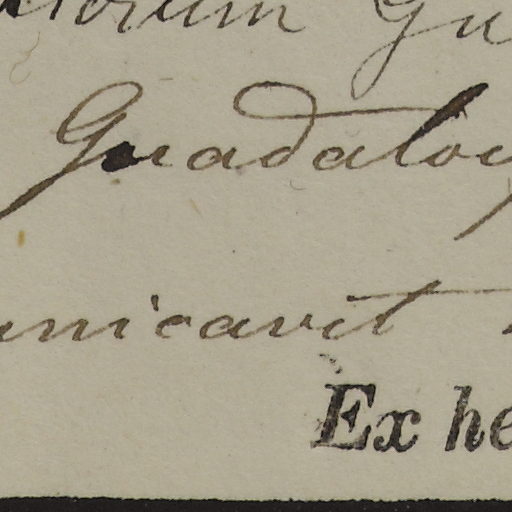 torum Gu
Guadalou
unicavit
Ex he